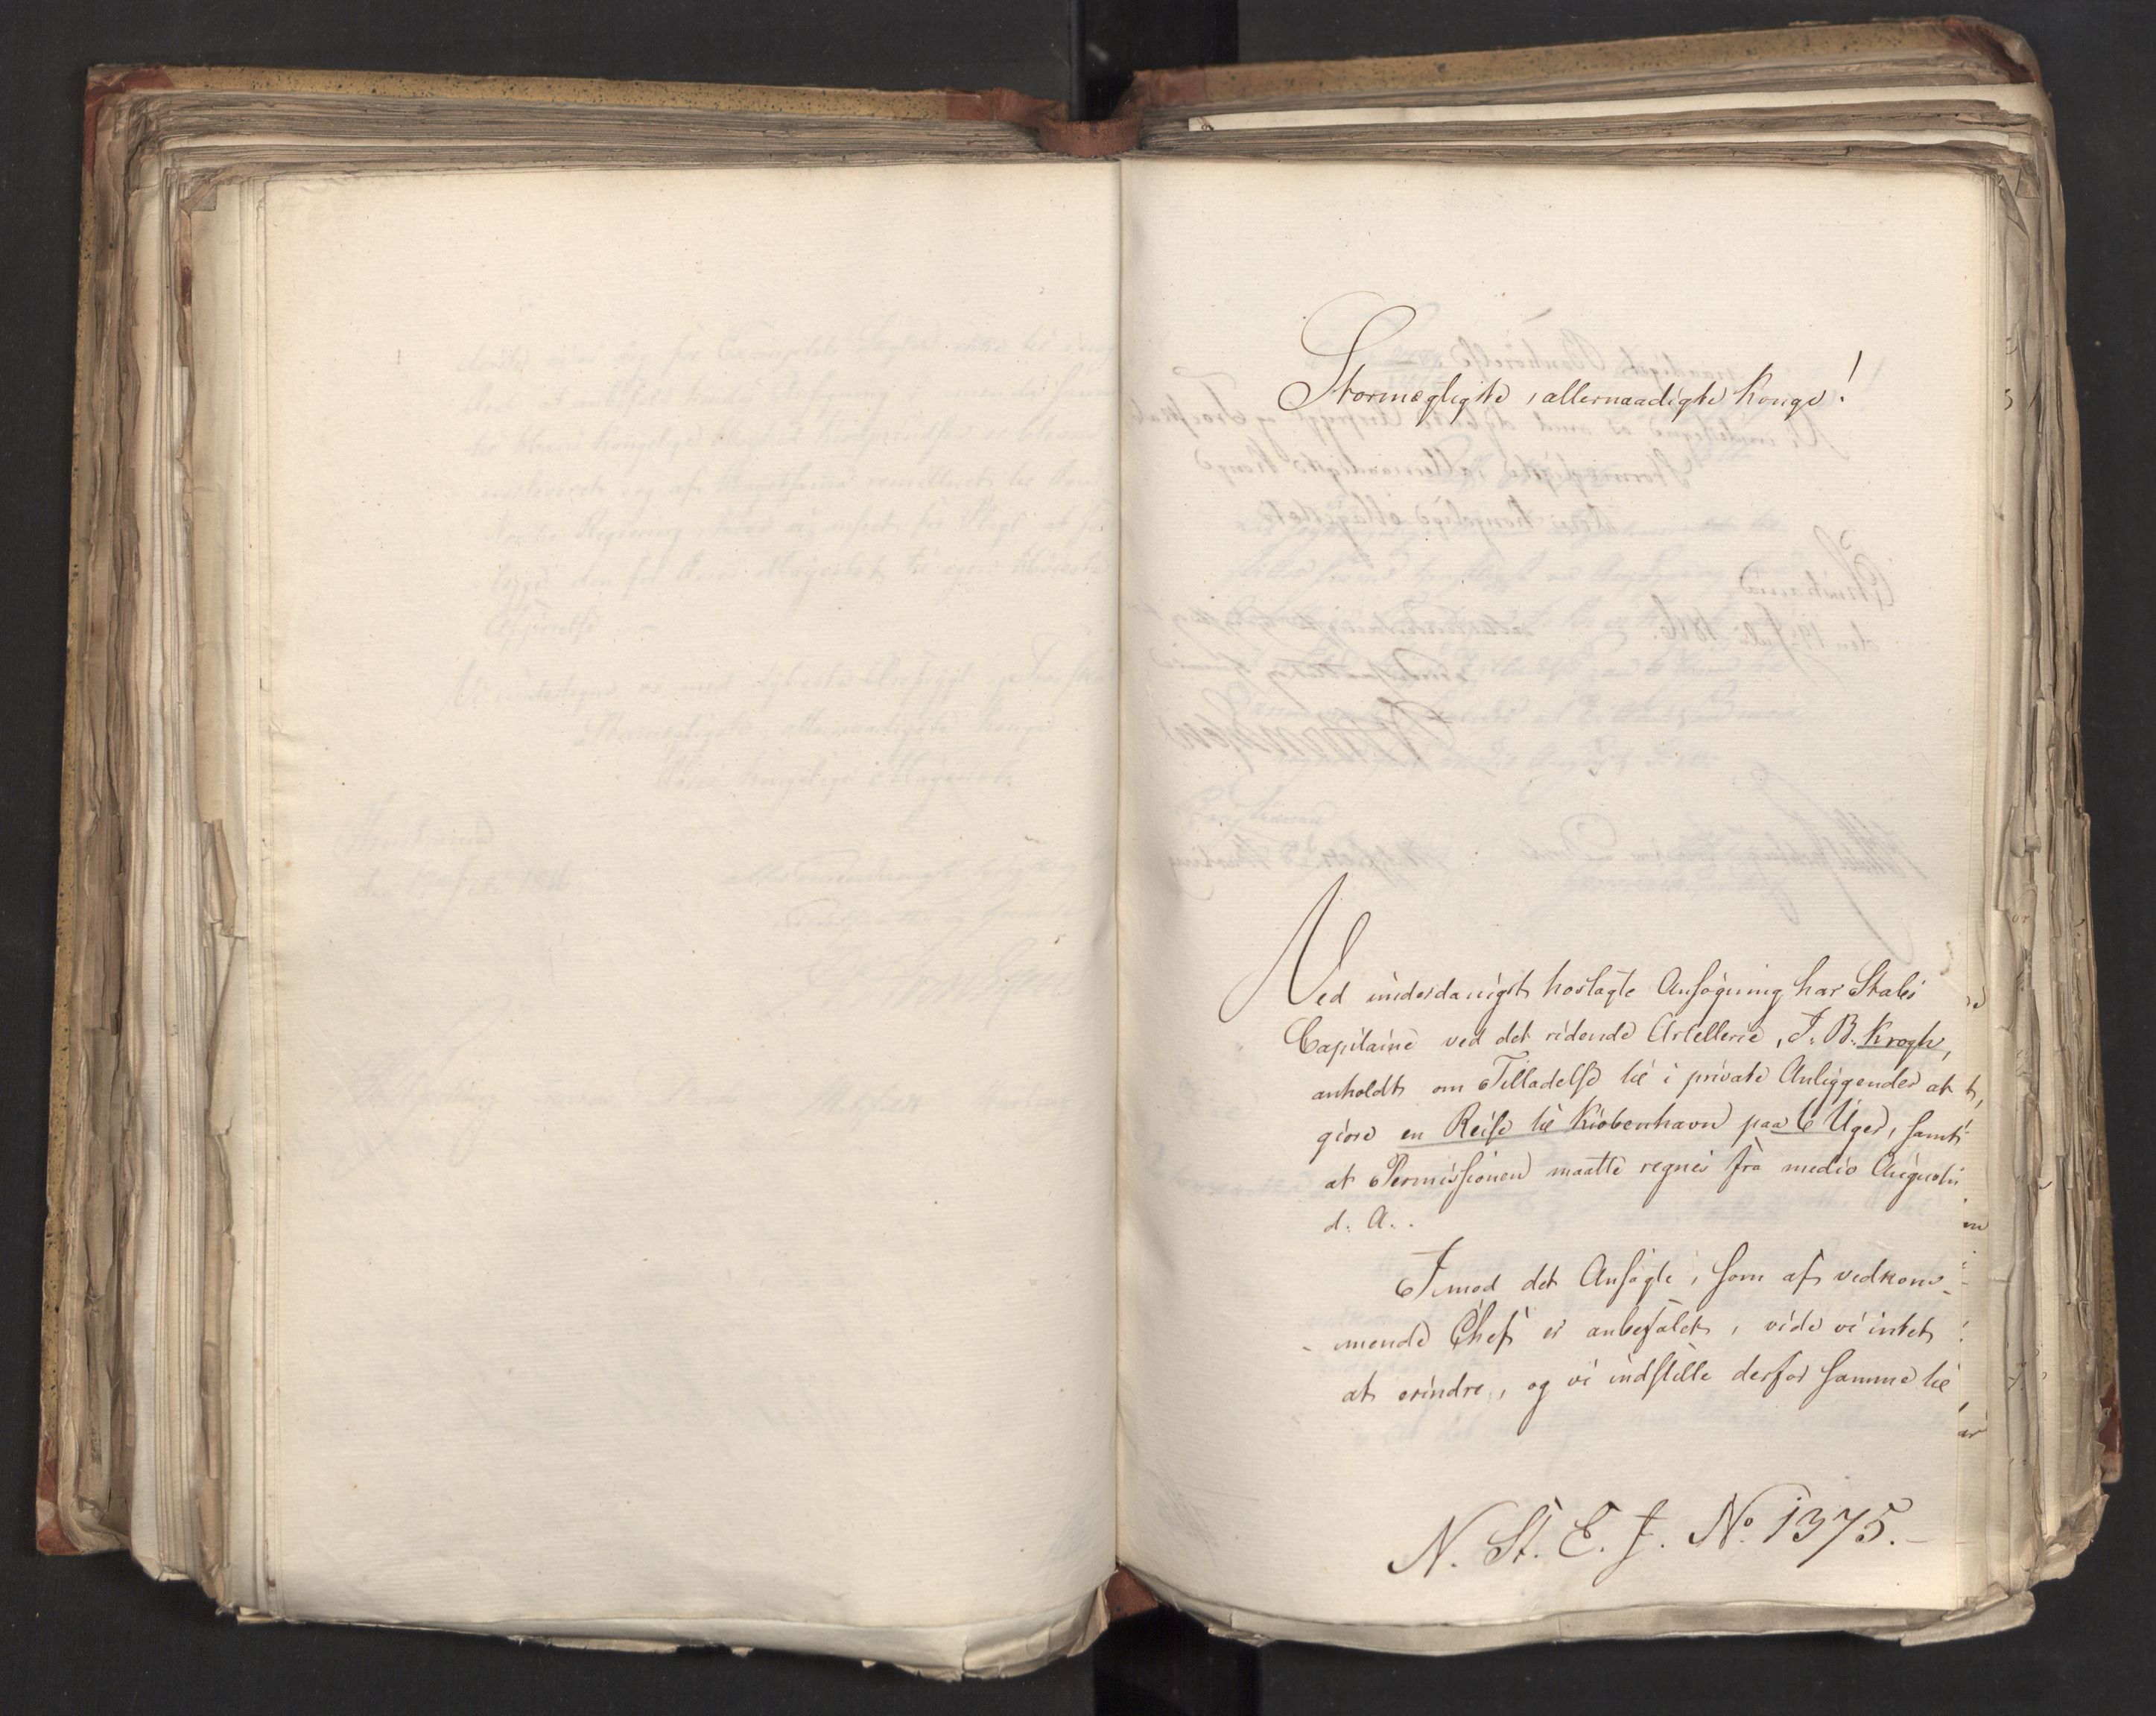 Stormægtigste, allernaadigste Konge!
Ved underdanigst hoslagte Ansøgning har Stabs
Capitaine ved det ridende Artellerie, J. B. Krogh,
anholdt om Tilladelse til i private Anliggender at
giøre en Reise til Kiøbenhavn paa 6 Uger, samt
at Permissionen maatte regnes fra medio Augusti
d. A..
Imod det Ansøgte, som af vedkom-
-mende Chef er anbefalet, vide vi intet
at erindre, og vi indstille derfor samme til
N. St. E. J. No 1375.-